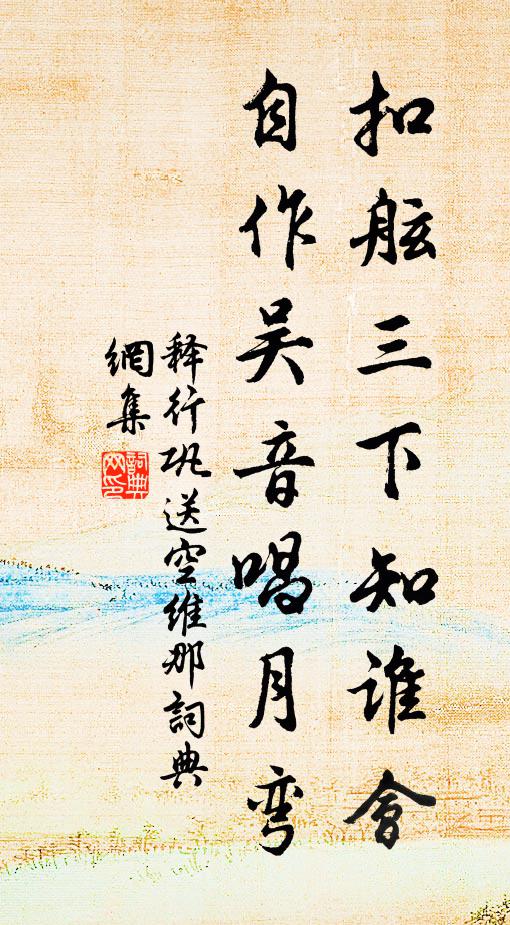 扣舷三下知谁會
自作吴音唱月弯
释行巩送空维那詞典
網集
詞典
网印